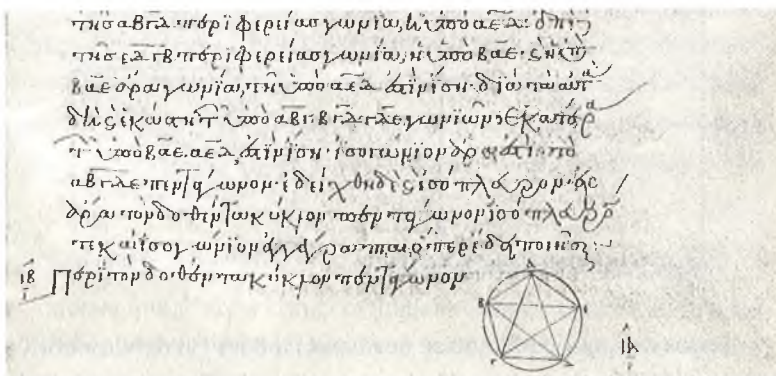 τῆς ΑΒΓΔ περιφερείας γωνία, ἡ ὑπὸ ΑΕΔ· ἐπὶ δὲ
τῆς ΕΔΓΒ περιφερείας γωνία, ἡ ὑπὸ ΒΑΕ· καὶ ἡ ὑπὸ
ΒΑΕ ἄρα γωνία, τῇ ὑπὸ ΑΕΔ ἐστὶν ἴση· διὰ τὰ αὐτὰ
δὴ καὶ ἑκάστη τῶν ὑπὸ ΑΒΓ· ΒΓΔ ΓΔΕ γωνιῶν, ἑκατέρα
τῶν ὑπὸ ΒΑΕ. ΑΕΔ, ἐστὶν ἴση· ἰσογώνιον ἄρα ἐστὶ τὸ
ΑΒΓΔΕ πεντάγωνον· ἐδείχθη δὲ καὶ ἰσόπλευρον· εἰς
ἄρα τὸν δοθέντα κύκλον πεντάγωνον ἰσόπλευρόν
τε καὶ ἰσογώνιον ἐγγέγραπται ὅπερ ἔδει ποιῆσαι:
ιβ Περὶ τὸν δοθέντα κύκλον πεντάγωνον
Α
Β Ε
Γ Δ
ια